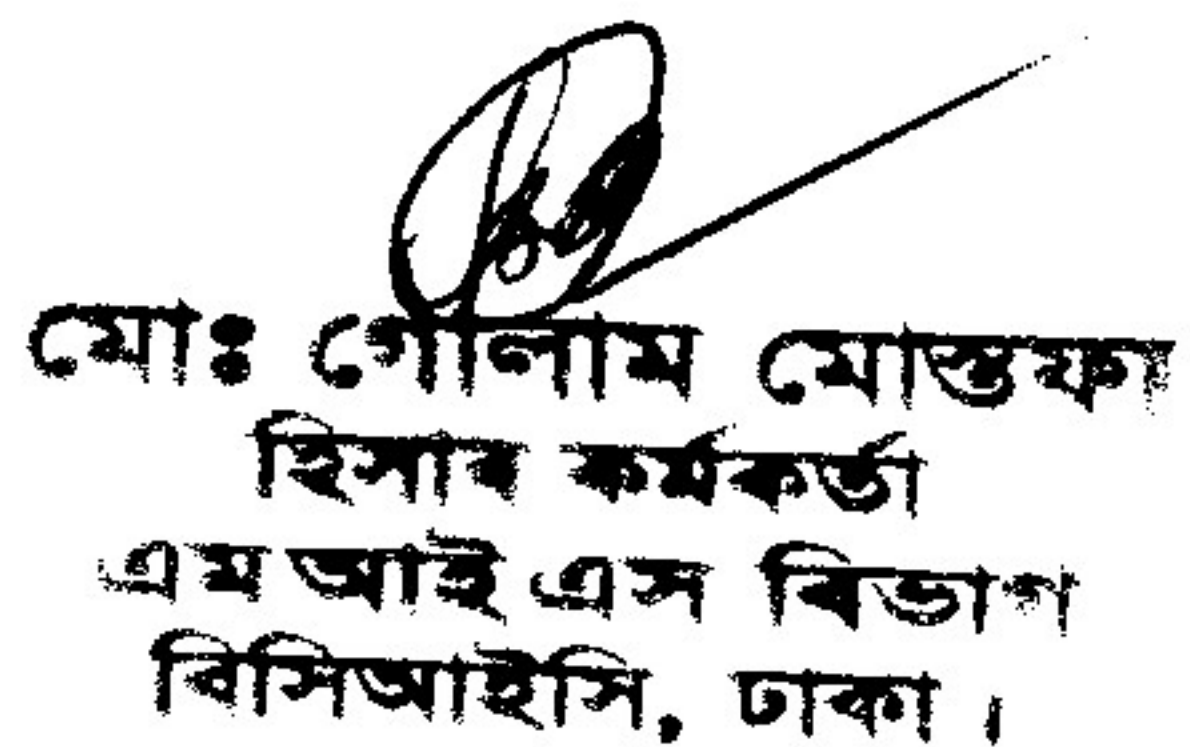 মোঃ গোলাম মোস্তফা
হিসাব কর্মকর্তা
এম আই এস বিভাগ
বিসিআইসি, ঢাকা।